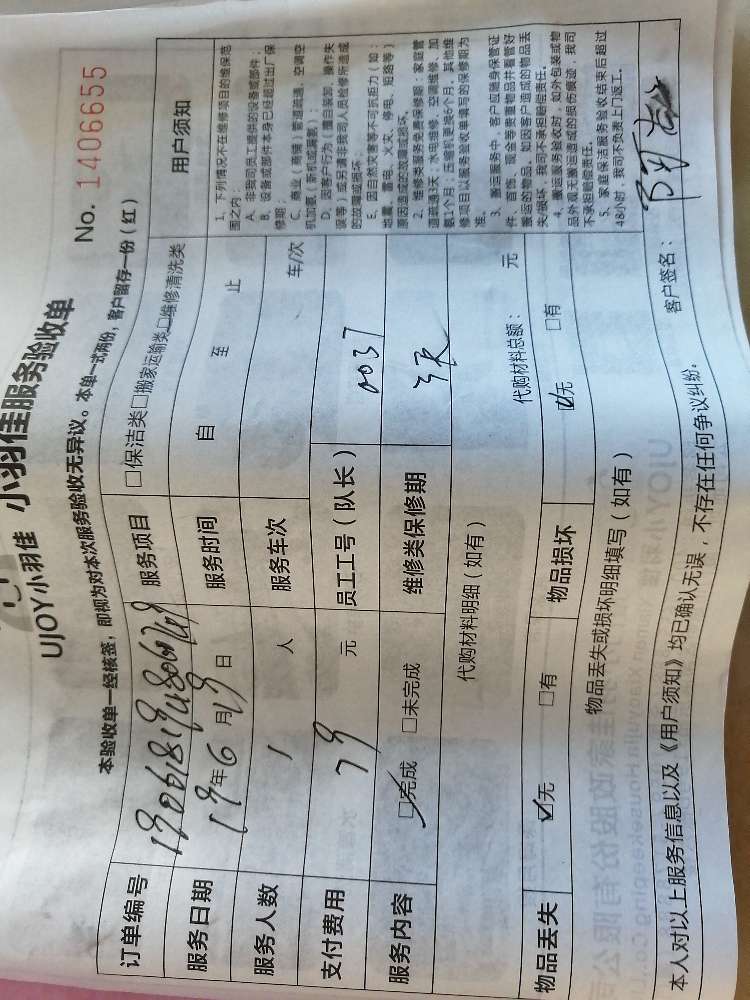 UJOY小羽佳 小羽佳服务验收单
No. 1406655
本验收单一经核签，即视为对本次服务验收无异议。本单一式两份，客户留存一份（红）
订单编号
服务项目 □保洁类□搬家运输类□维修清洗类
服务日期 19年6月19日
服务时间 自 至 止
服务人数 1 人
服务车次 车/次
支付费用 79 元
员工工号（队长） 0037
服务内容 □完成 □未完成
维修类保修期 3天
代购材料明细（如有）
代购材料总额： 元
物品丢失 □无 □有
物品损坏 □无 □有
物品丢失或损坏明细填写（如有）
用户须知
1、下列情况不在维修项目的维保范
围之内：
A、非我司员工提供的设备或部件；
B、设备或部件本身已经超过出厂保
修期；
C、商业（商铺）管道疏通，空调空
机加氨（茶机或漏氨）；
D、因客户行为（擅自装卸、操作失
误等）或另请非我司人员检修所造成
的故障或损坏；
E、因自然灾害等不可抗拒力（如：
地震、蓄电、火灾、停电、短路等）
原因造成的故障或损坏。
2、维修类服务免费保修期：家庭管
道疏通3天，水电维修、空调维修、加
氨1个月，压缩机更换6个月，其他维
修项目以服务验收单填写的保修期为
准。
3、搬运服务中，客户应随身保管证
件、首饰、现金等贵重物品并看管好
搬运的物品。如因客户造成的物品丢
失/损坏，我司不承担赔偿责任。
4、搬运服务验收时，如外包装或物
品外观无搬运造成的损伤痕迹，我司
不承担赔偿责任。
5、家庭保洁服务验收结束后超过
48小时，我司不负责上门返工。
本人对以上服务信息以及《用户须知》均已确认无误，不存在任何争议纠纷。
客户签名：